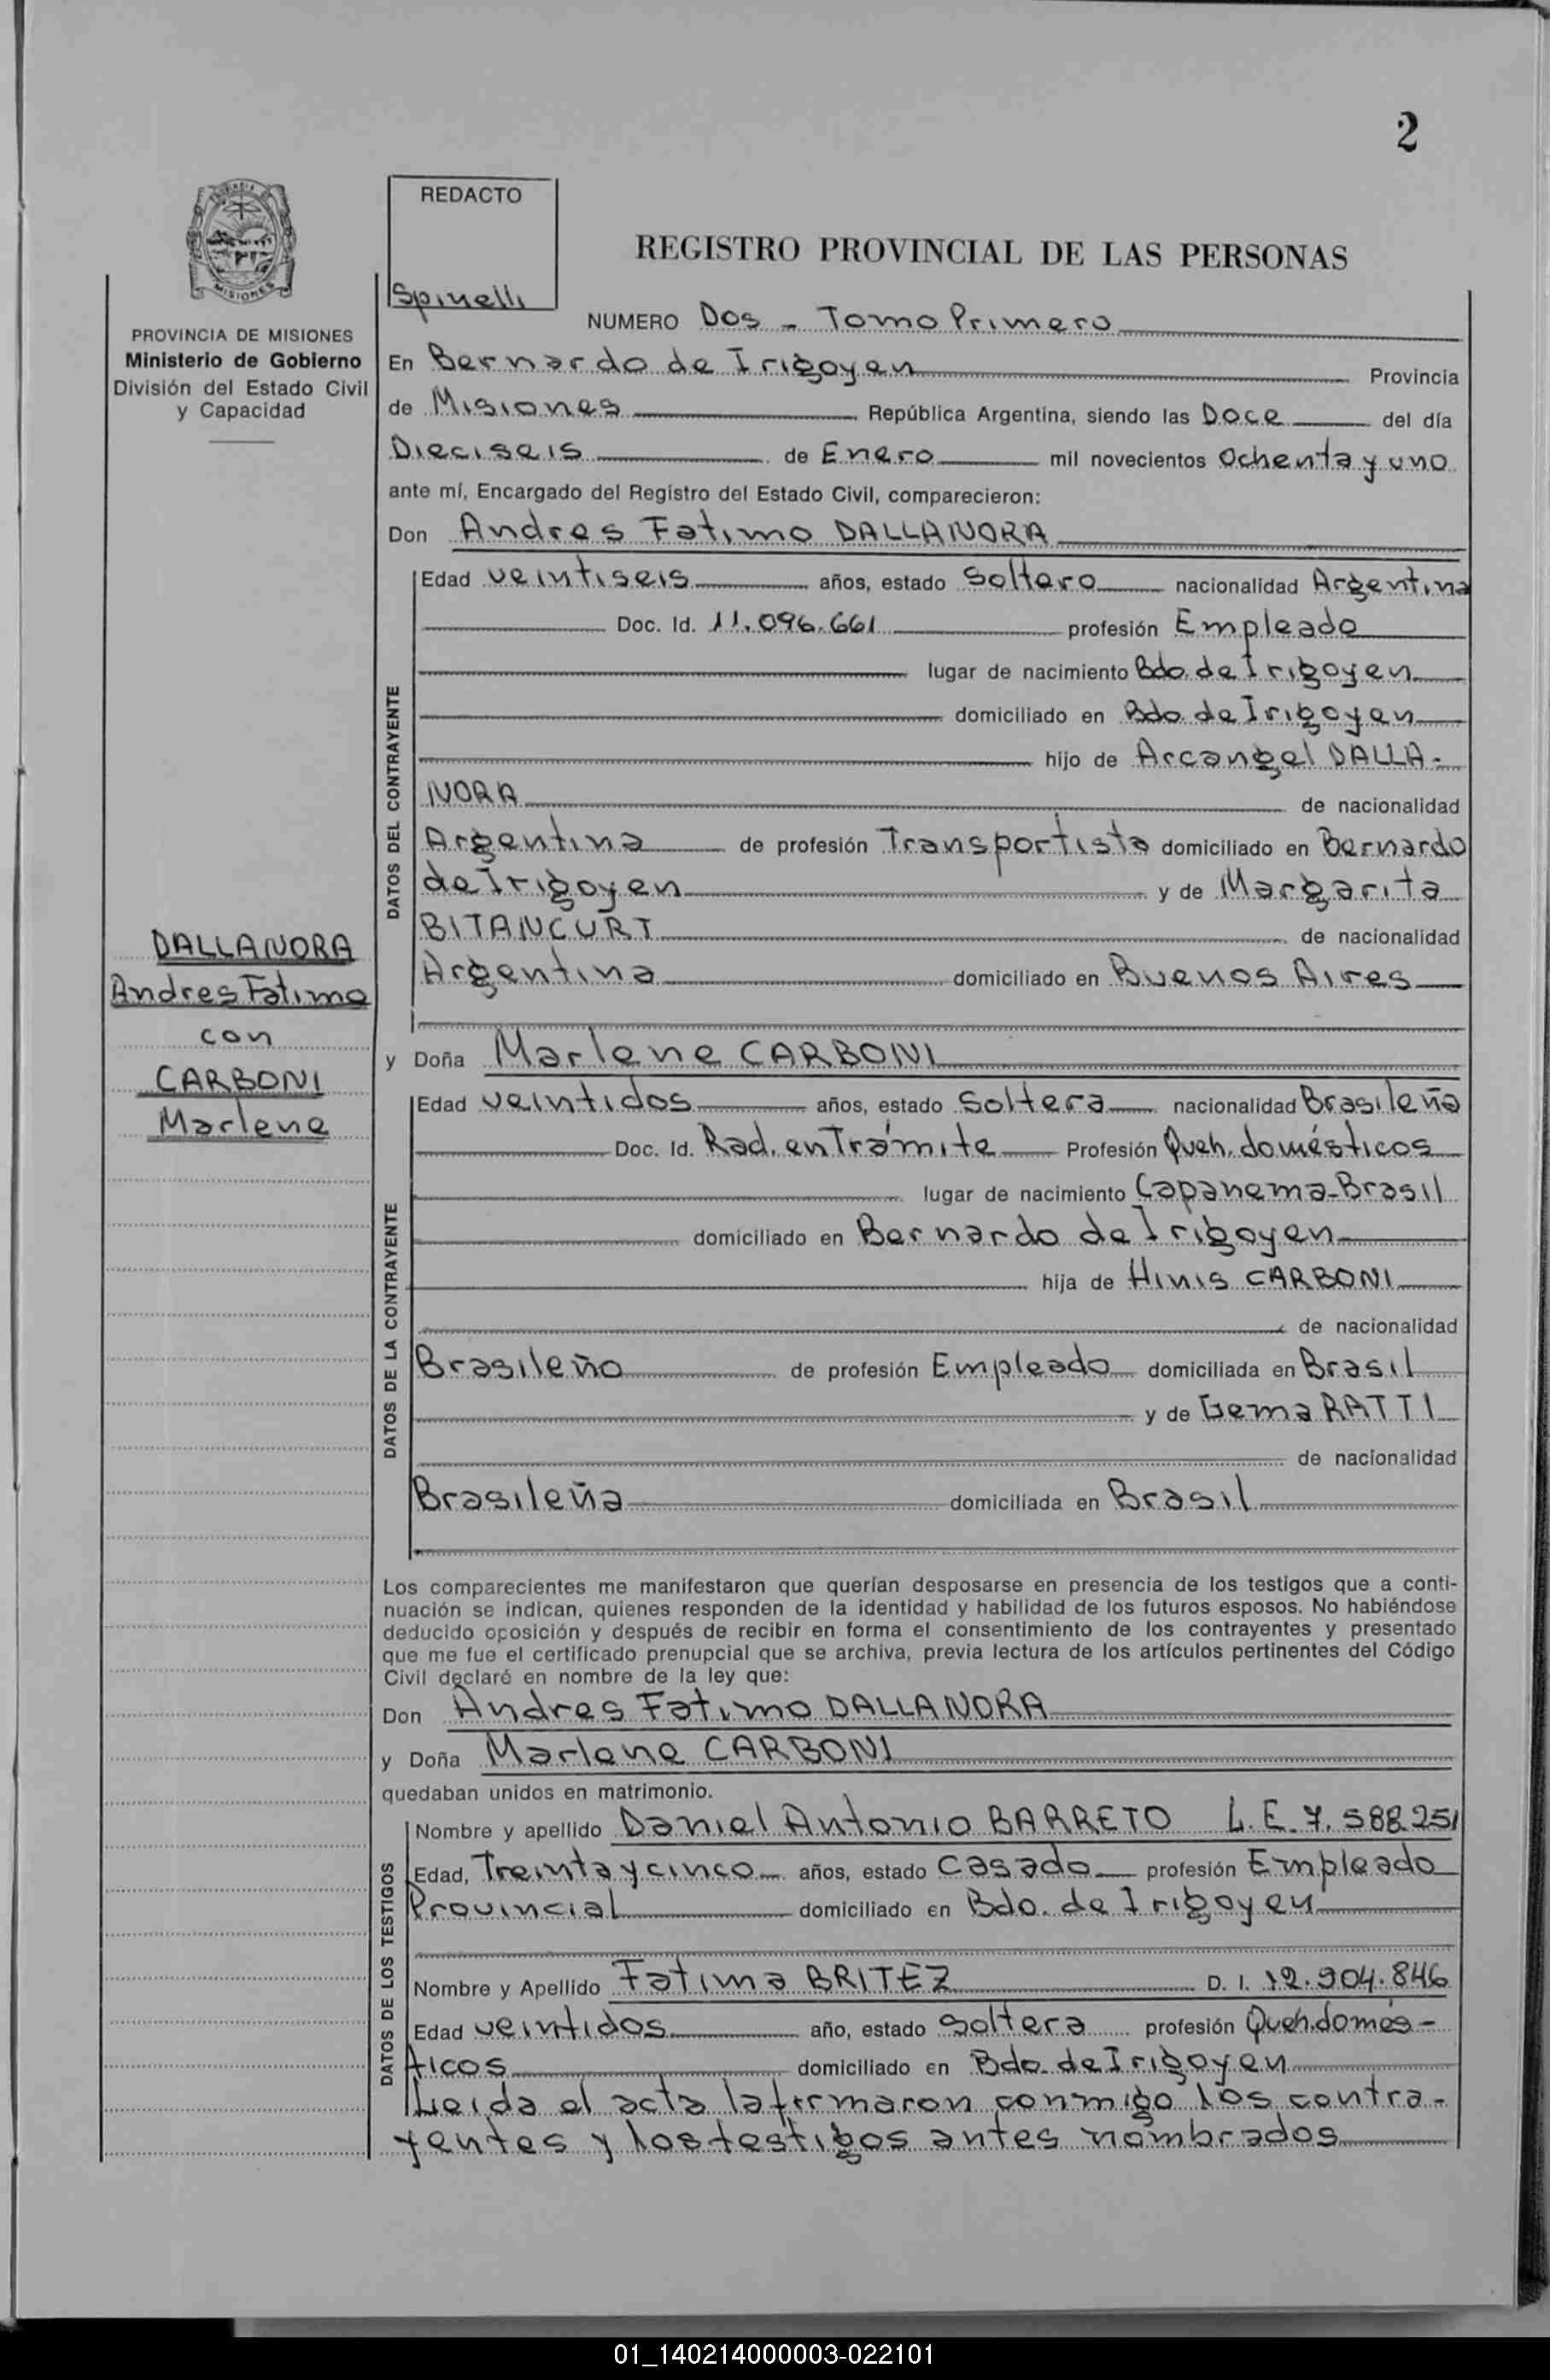 2
REDACTO
Spinelli
MISIONES
PROVINCIA DE MISIONES
Ministerio de Gobierno
División del Estado Civil
y Capacidad
REGISTRO PROVINCIAL DE LAS PERSONAS
NUMERO Dos - Tomo Primero
En Bernardo de Irigoyen Provincia
de Misiones República Argentina, siendo las Doce del día
Dieciseis de Enero mil novecientos Ochenta y uno
ante mí, Encargado del Registro del Estado Civil, comparecieron:
Don Andres Fatimo DALLANORA
DATOS DEL CONTRAYENTE
Edad veintiseis años, estado Soltero nacionalidad Argentina
Doc. Id. 11.096.661 profesión Empleado
lugar de nacimiento Bdo. de Irigoyen
domiciliado en Bdo. de Irigoyen
hijo de Arcangel DALLA-
NORA de nacionalidad
Argentina de profesión Transportista domiciliado en Bernardo
de Irigoyen y de Margarita
BITANCURT de nacionalidad
Argentina domiciliado en Buenos Aires
DALLANORA
Andres Fatimo
con
CARBONI
Marlene
y Doña Marlene CARBONI
DATOS DE LA CONTRAYENTE
Edad veintidos años, estado Soltera nacionalidad Brasileña
Doc. Id. Rad. en Trámite Profesión Queh. domésticos
lugar de nacimiento Capanema-Brasil
domiciliado en Bernardo de Irigoyen
hija de Hinis CARBONI
de nacionalidad
Brasileño de profesión Empleado domiciliada en Brasil
y de Gema RATTI
de nacionalidad
Brasileña domiciliada en Brasil
Los comparecientes me manifestaron que querían desposarse en presencia de los testigos que a conti-
nuación se indican, quienes responden de la identidad y habilidad de los futuros esposos. No habiéndose
deducido oposición y después de recibir en forma el consentimiento de los contrayentes y presentado
que me fue el certificado prenupcial que se archiva, previa lectura de los artículos pertinentes del Código
Civil declaré en nombre de la ley que:
Don Andres Fatimo DALLANORA
y Doña Marlene CARBONI
quedaban unidos en matrimonio.
DATOS DE LOS TESTIGOS
Nombre y apellido Daniel Antonio BARRETO L.E. 7.588.251
Edad, Treinta y cinco años, estado Casado profesión Empleado
Provincial domiciliado en Bdo. de Irigoyen
Nombre y Apellido Fatima BRITEZ D. I. 12.904.846
Edad veintidos año, estado Soltera profesión Queh. domés-
ticos domiciliado en Bdo. de Irigoyen
Leida el acta la firmaron conmigo los contra-
yentes y los testigos antes nombrados
01_140214000003-022101